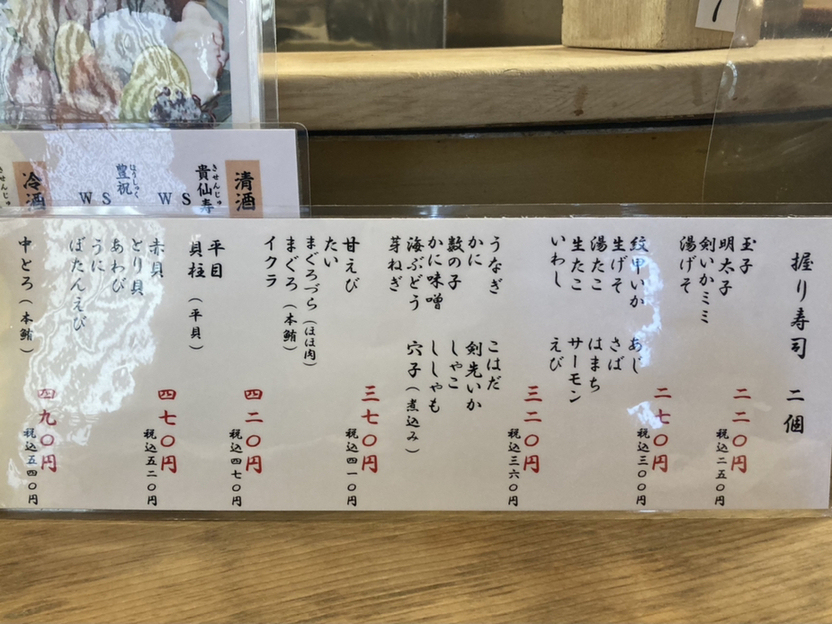 清酒
きせんじゅ
貴仙寿
WS
ほうしゅく
豊祝
WS
冷酒
きせんじゅ
握り寿司 二個
玉子
明太子
剣いかミミ
湯げそ
二二〇円
税込二五〇円
紋甲いか
生げそ
湯たこ
生たこ
いわし
あじ
さば
はまち
サーモン
えび
二七〇円
税込三〇〇円
うなぎ
かに
数の子
かに味噌
海ぶどう
芽ねぎ
こはだ
剣先いか
しゃこ
ししゃも
穴子(煮込み)
三二〇円
税込三六〇円
甘えび
たい
まぐろづら(ほほ肉)
まぐろ(本鮪)
イクラ
三七〇円
税込四一〇円
平目
貝柱(平貝)
四二〇円
税込四七〇円
赤貝
とり貝
あわび
うに
ぼたんえび
四七〇円
税込五二〇円
中とろ(本鮪)
四九〇円
税込五四〇円